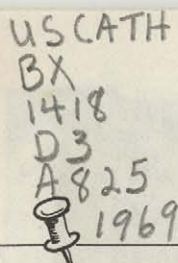 USCATH
BX
1418
D3
A825
1969